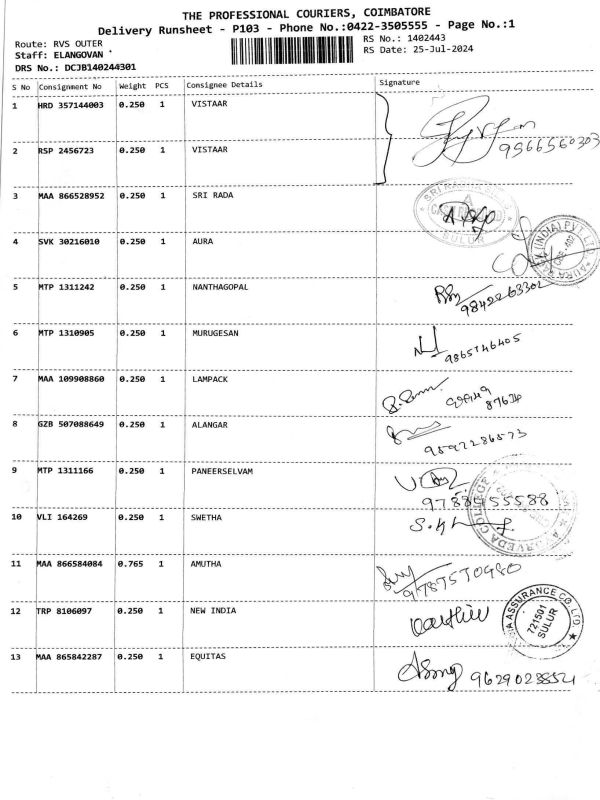 THE PROFESSIONAL COURIERS, COIMBATORE
Delivery Runsheet - P103 - Phone No.:0422-3505555 - Page No.:1
Route: RVS OUTER
RS No.: 1402443
Staff: ELANGOVAN
RS Date: 25-Jul-2024
DRS No.: DCJB140244301
S No Consignment No Weight PCS Consignee Details Signature
1 HRD 357144003 0.250 1 VISTAAR
9566560303
2 RSP 2456723 0.250 1 VISTAAR
3 MAA 866528952 0.250 1 SRI RADA
SULUR
4 SVK 30216010 0.250 1 AURA
(INDIA) PVT. LTD.
5 MTP 1311242 0.250 1 NANTHAGOPAL
6 MTP 1310905 0.250 1 MURUGESAN
7 MAA 109908860 0.250 1 LAMPACK
8 GZB 507088649 0.250 1 ALANGAR
9 MTP 1311166 0.250 1 PANEERSELVAM
10 VLI 164269 0.250 1 SWETHA
11 MAA 866584084 0.765 1 AMUTHA
12 TRP 8106097 0.250 1 NEW INDIA
ASSURANCE CO. LTD.
721501
SULUR
13 MAA 865842287 0.250 1 EQUITAS